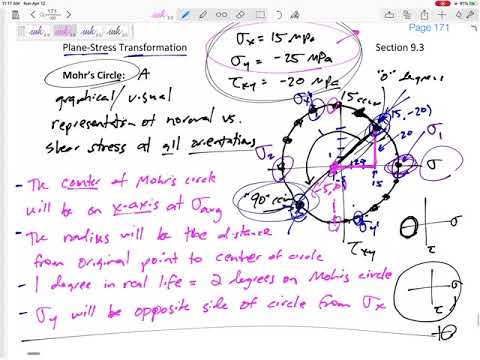 11:17 AM Sun Apr 12
Page 171
Plane-Stress Transformation
Section 9.3
σx = 15 MPa
σy = -25 MPa
τxy = -20 MPa
Mohr's Circle: A
graphical/visual
representation of normal vs.
shear stress at all orientations
"0" degrees
15 ccw
(15, -20)
20
σ1
σ2
σ
15
(-5,0)
"90" ccw
σy'
τxy
σ
τ
σ
τ
- The center of Mohr's circle
will be on x-axis at σavg
- The radius will be the distance
from original point to center of circle
- 1 degree in real life = 2 degrees on Mohr's circle
- σy will be opposite side of circle from σx